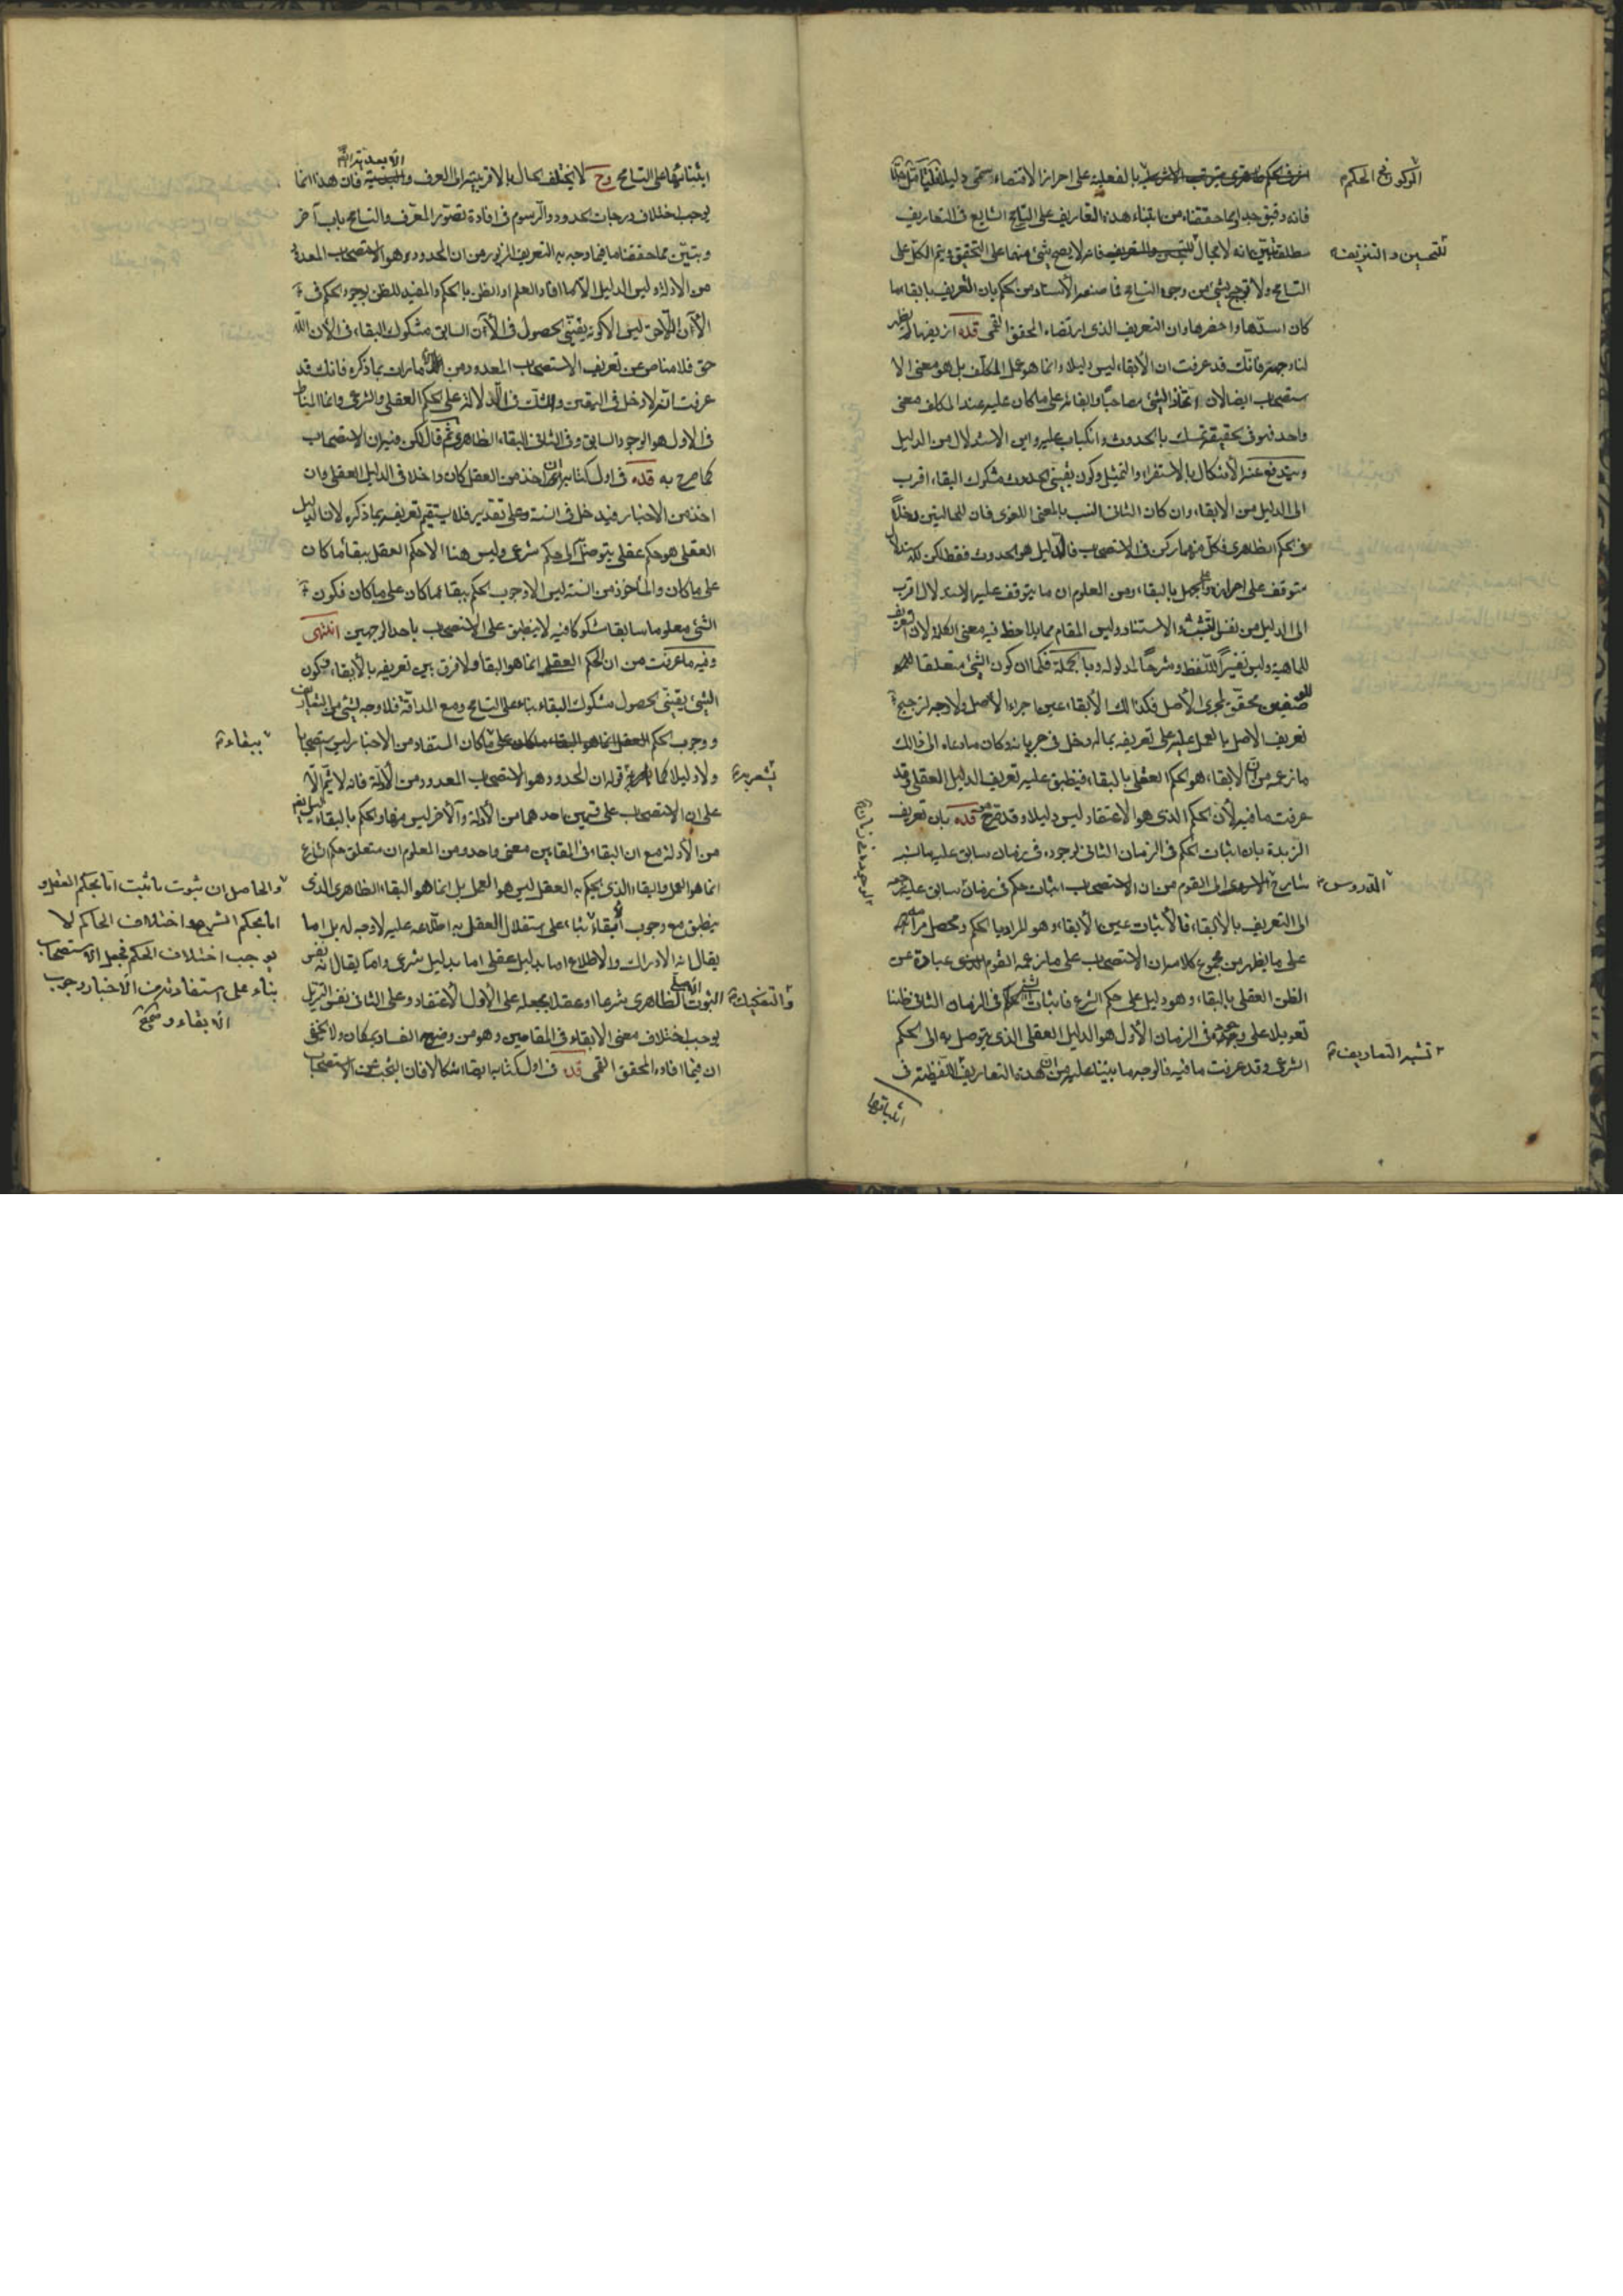 فانه دقيق جدا وبما حققناه من ابتناء هذه التعاريف على التسامح الشايع فى التعاريف
مطلقا تبين انه لا مجال فانه لا يصح شئ منها على التحقيق ويتم الكل على
التسامح ولا ترجيح لشئ من وجوه التسامح فما صنعه الأستاد من الحكم بان التعريف بابقاء ما
كان اسدّها واخصرها وان التعريف الذى ارتضاه المحقق القمى قده ازيفها لم يظهر
لنا وجهه فانّك قد عرفت ان الأبقاء ليس دليلا وانما هو عمل المكلف بل هو معنى الا
ستصحاب ايضا لان اتخاذ الشئ مصاحبا وابقائه على ما كان عليه عند المكلف معنى
واحد فهو فى الحقيقة تمسك بالحدوث واتكال عليه واين الاستدلال من الدليل
ويندفع عنه الأشكال بالاستقراء والتمثيل وكون يقينى الحدوث مشكوك البقاء اقرب
الى الدليل من الابقاء وان كان الثانى انسب بالمعنى اللغوى فان للحالتين دخلاً
فى الحكم الظاهرى فكل منهما ركن فى الاستصحاب فالدليل هو الحدوث فقط لكن لكنه
متوقف على احراز بالبقاء ومن المعلوم ان ما يتوقف عليه الاستدلال اقرب
الى الدليل من نفس التشبث والاستناد وليس المقام مما يلاحظ فيه معنى الكلمة لان
للماهية وليس تفسيرا للّفظ وشرحا لمدلوله وبالجملة فكما ان كون الشئ متعلقا
للوصفين محقق لمجرى الأصل فكذلك الأبقاء عين اجراء الأصل ولا وجه لترجيح
تعريف الأصل بالعمل عليه على تعريفه بما له دخل فى جريانه وكان ما دعاه الى ذالك
ما زعمه من ان الأبقاء هو الحكم العقلى بالبقاء فينطبق عليه تعريف الدليل العقلى وقد
عرفت ما فيه لأن الحكم الذى هو الاعتقاد ليس دليلا وقد صرح قده بان تعريف
الزبدة بان اثبات الحكم فى الزمان الثانى لوجوده فى زمان سابق عليه ما نسبه
شارح الى القوم من ان الاستصحاب اثبات حكم فى زمان سابق عليه
الى التعريف بالأبقاء فالأثبات عين الأبقاء وهو المراد بالحكم ومحصل مرامه
على ما يظهر من مجموع كلامه ان الاستصحاب على ما زعمه القوم عبارة عن
الظن العقلى بالبقاء وهو دليل على حكم الشرع فاثبات الحكم فى الزمان الثانى ظنا
تعويلا على وجوده فى الزمان الأول هو الدليل العقلى الذى يتوصل به الى الحكم
الشرعى وقد عرفت ما فيه فالوجه ما بيناه عليه من ان هذه التعاريف اللفظية فى
ابتنائها
للتحسين والتزييف
الدروس
تشبه التعاريف
ابتنائها على التسامح وح لا يختلف الحال بالاقربية الى العرف و فان هذا انما
يوجب اختلاف درجات الحدود والرسوم فى افادة تصور المعرف والتسامح باب آخر
وتبيّن مما حققنا ما فيما وجه به التعريف المزبور من ان المحدود هو الاستصحاب المعدود
من الأدلة وليس الدليل الا ما افاد العلم او الظن بالحكم والمفيد للظن بوجود الحكم فى
الآن اللاحق ليس الا كونه يقينى الحصول فى الآن السابق مشكوك البقاء فى الآن اللا
حق فلا مناص عن تعريف الاستصحاب المعدود من الأمارات بما ذكره فانك قد
عرفت انه لا دخل فى اليقين والشك فى الدلالة على الحكم العقلى والشرعى وانما المناط
فى الاول هو الوجود السابق وفى الثانى البقاء الظاهرى ثم قال لكن فيه ان الاستصحاب
كما صرح به قده فى اول كتابه ان اخذ من العقل كان داخلا فى الدليل العقلى وان
اخذ من الاخبار فيدخل فى السنة وعلى تقدير فلا يستقيم تعريفه بما ذكره لان دليل
العقلى هو حكم عقلى يتوصل به الى حكم شرعى وليس هنا الا حكم العقل ببقاء ما كان
على ما كان والمأخوذ من السنة ليس الا وجوب الحكم ببقاء ما كان على ما كان فكون
الشئ معلوما سابقا مشكوكا فيه لا ينطبق على الاستصحاب باحد الوجهين انتهى
وفيه ما عرفت من ان الحكم العقلى انما هو البقاء ولا فرق بين تعريفه بالأبقاء وبكون
الشئ يقينى الحصول مشكوك البقاء بناء على التسامح ومع المداقة فلا وجه لشئ من التعاريف
ووجوب الحكم ما كان على ما كان المستفاد من الاخبار ليس استصحابا
ولا دليلا كما قوله ان المحدود هو الاستصحاب المعدود من الأدلة فانه لا يتم الا
على ان الاستصحاب على قسمين احدهما من الأدلة والآخر ليس منها والحكم بالبقاء
من الأدلة مع ان البقاء فى المقامين معنى واحد ومن المعلوم ان متعلق حكم الشارع
انما هو العمل والبقاء الذى يحكم به العقل ليس هو العمل بل انما هو البقاء الظاهرى الذى
ينطبق مع وجوب بناء على استقلال العقل به اطلاعه عليه لا وجه له بل اما
يقال انه الادراك والاطلاع اما بدليل عقلى اما بدليل شرعى واما يقال انه نفس
الثبوت الظاهرى شرعا او عقلا يجعله على الأول الأعتقاد وعلى الثانى نفس
يوجب اختلاف معنى الابقاء فى المقامين وهو من وضوح الفساد بمكان ولا يخفى
ان فيما افاده المحقق القمى قده فى اول كتابه ايضا اشكالا فان البحث عن الاستصحاب
ببقاء
والتفكيك
والحاصل ان ثبوت ما ثبت اما بحكم العقل و
اما بحكم الشرع واختلاف الحاكم لا
يوجب اختلاف الحكم فجعل الاستصحاب
بناء على استفادته من الاخبار وجوب
الابقاء